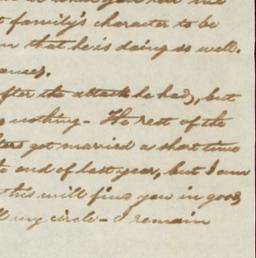 family's character to be
that he is doing so well.
after the attack he had, but
nothing - The rest of the
got married a short time
end of last year, but I am
this will find you in good
my circle - I remain